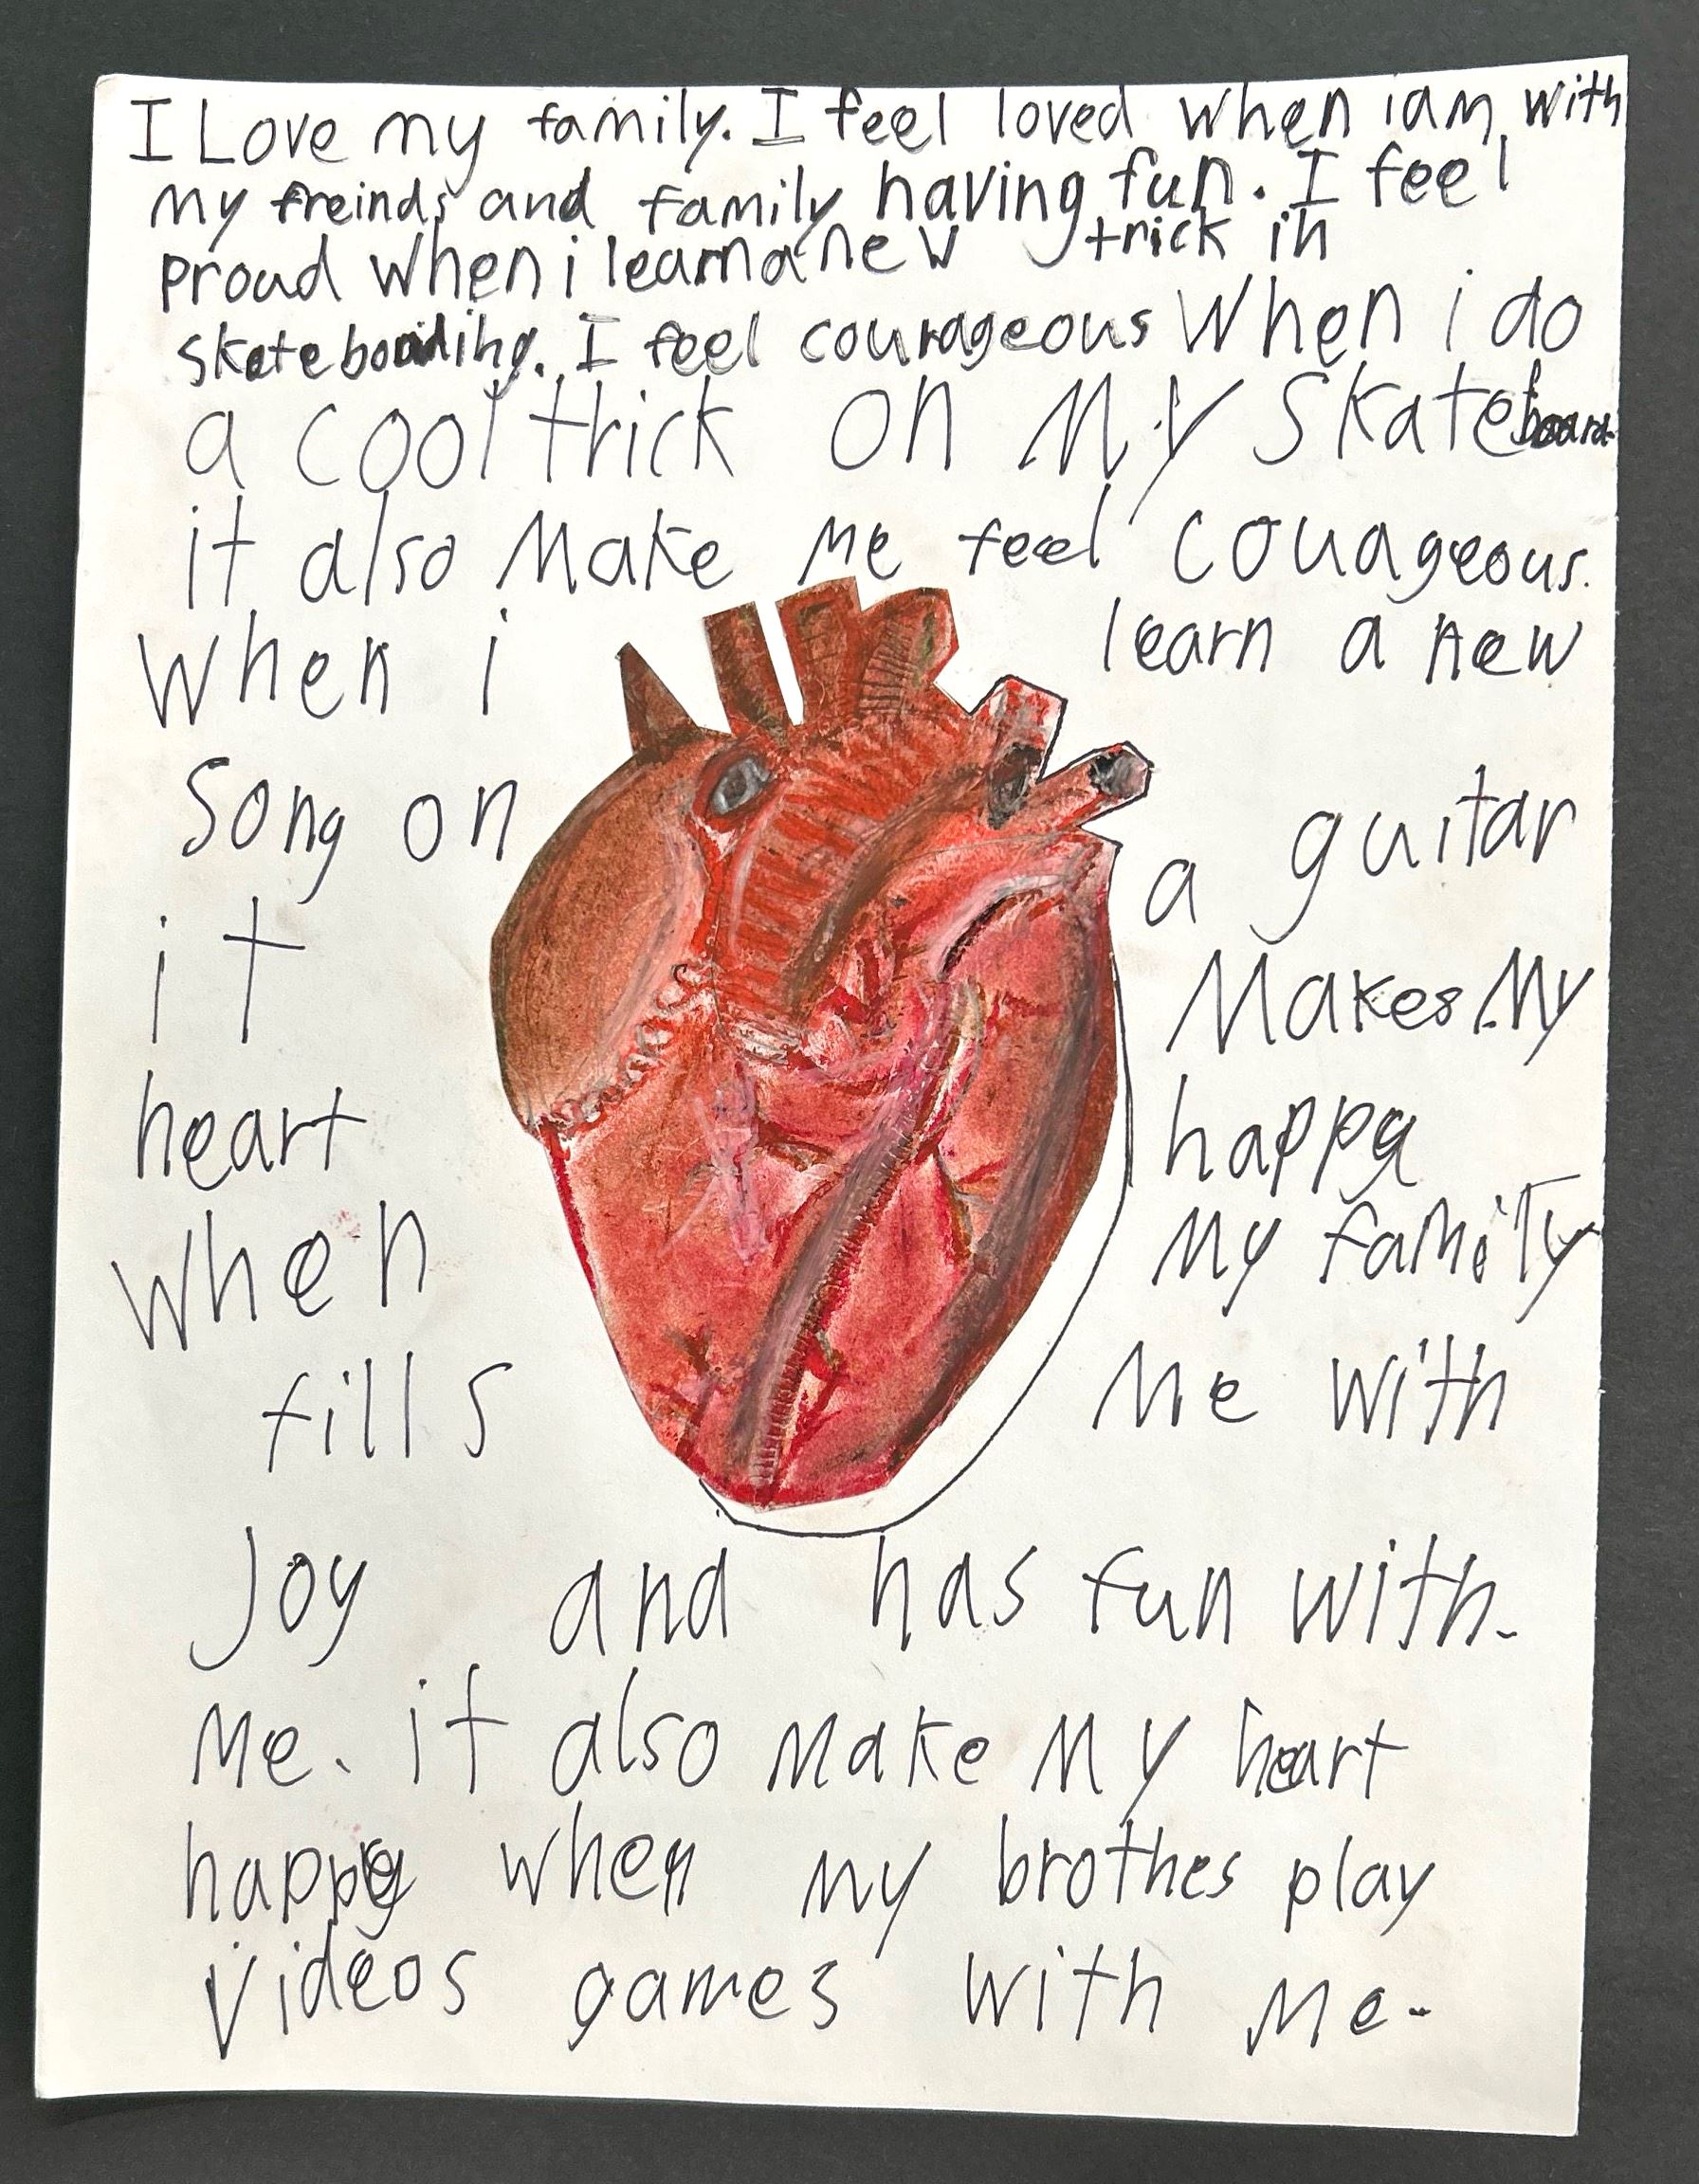 I Love my family. I feel loved when iam with
my freinds and family having fun. I feel
proud when i learn a new trick in
skateboading. I feel courageous When i do
a cool trick on My skateboard
it also Make Me feel couageous.
when i learn a new
song on a guitar
it Makes My
heart happy
when My family
fills Me with
Joy and has fun with.
Me. it also Make My heart
happy when my brothes play
Videos games with Me.